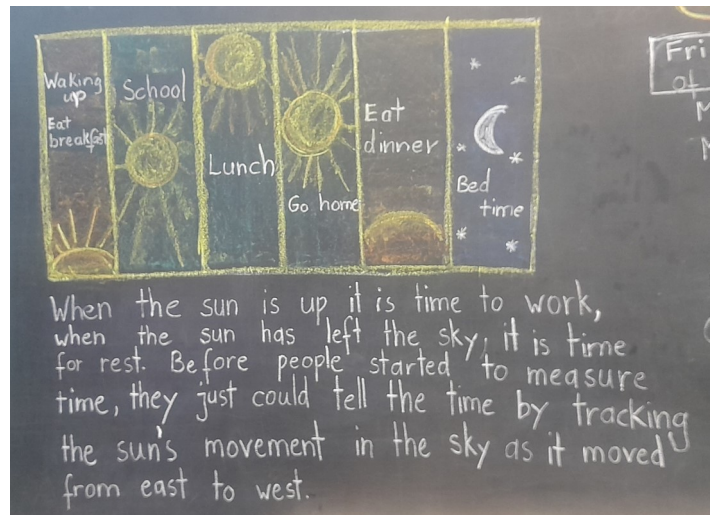 Waking
up
Eat
breakfast
School
Lunch
Go home
Eat
dinner
Bed
time
Fri
of
M
When the sun is up it is time to work,
when the sun has left the sky, it is time
for rest. Before people started to measure
time, they just could tell the time by tracking
the sun's movement in the sky as it moved
from east to west.